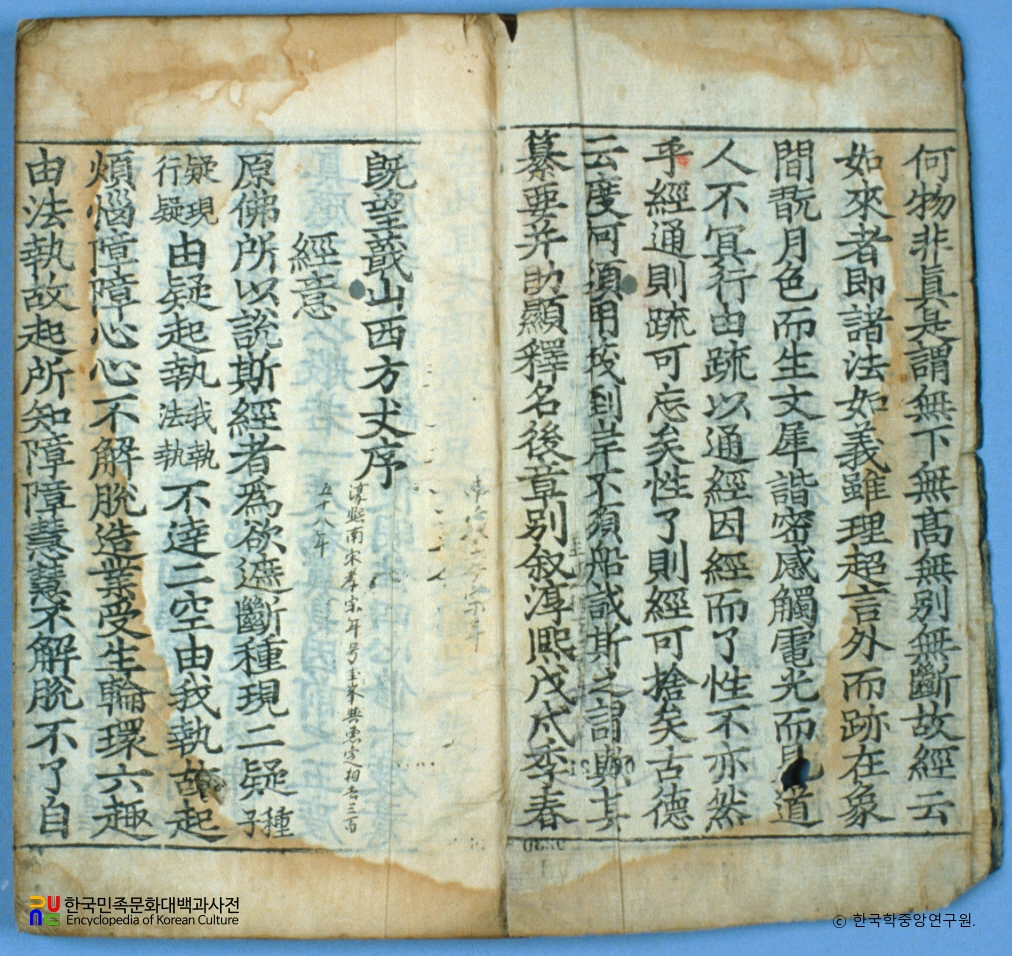 何物非眞是謂無下無高無別無斷故經云
如來者即諸法如義雖理超言外而跡在象
間翫月色而生文犀諧密感觸電光而見道
人不冥行由疏以通經因經而了性不亦然
乎經通則疏可忘矣性了則經可捨矣古德
云度河須用筏到岸不須船誠斯之謂歟其
纂要并助顯釋名後章別叙淳熈戊戌季春
旣望蕺山西方丈序
淳熙南宋孝宗年号
五十八年
經意
原佛所以說斯經者爲欲遮斷種現二疑種子
疑現行疑由疑起執我執法執不達二空由我執故起
煩惱障障心心不解脫造業受生輪環六趣
由法執故起所知障障慧慧不解脫不了自
한국민족문화대백과사전
Encyclopedia of Korean Culture
© 한국학중앙연구원.